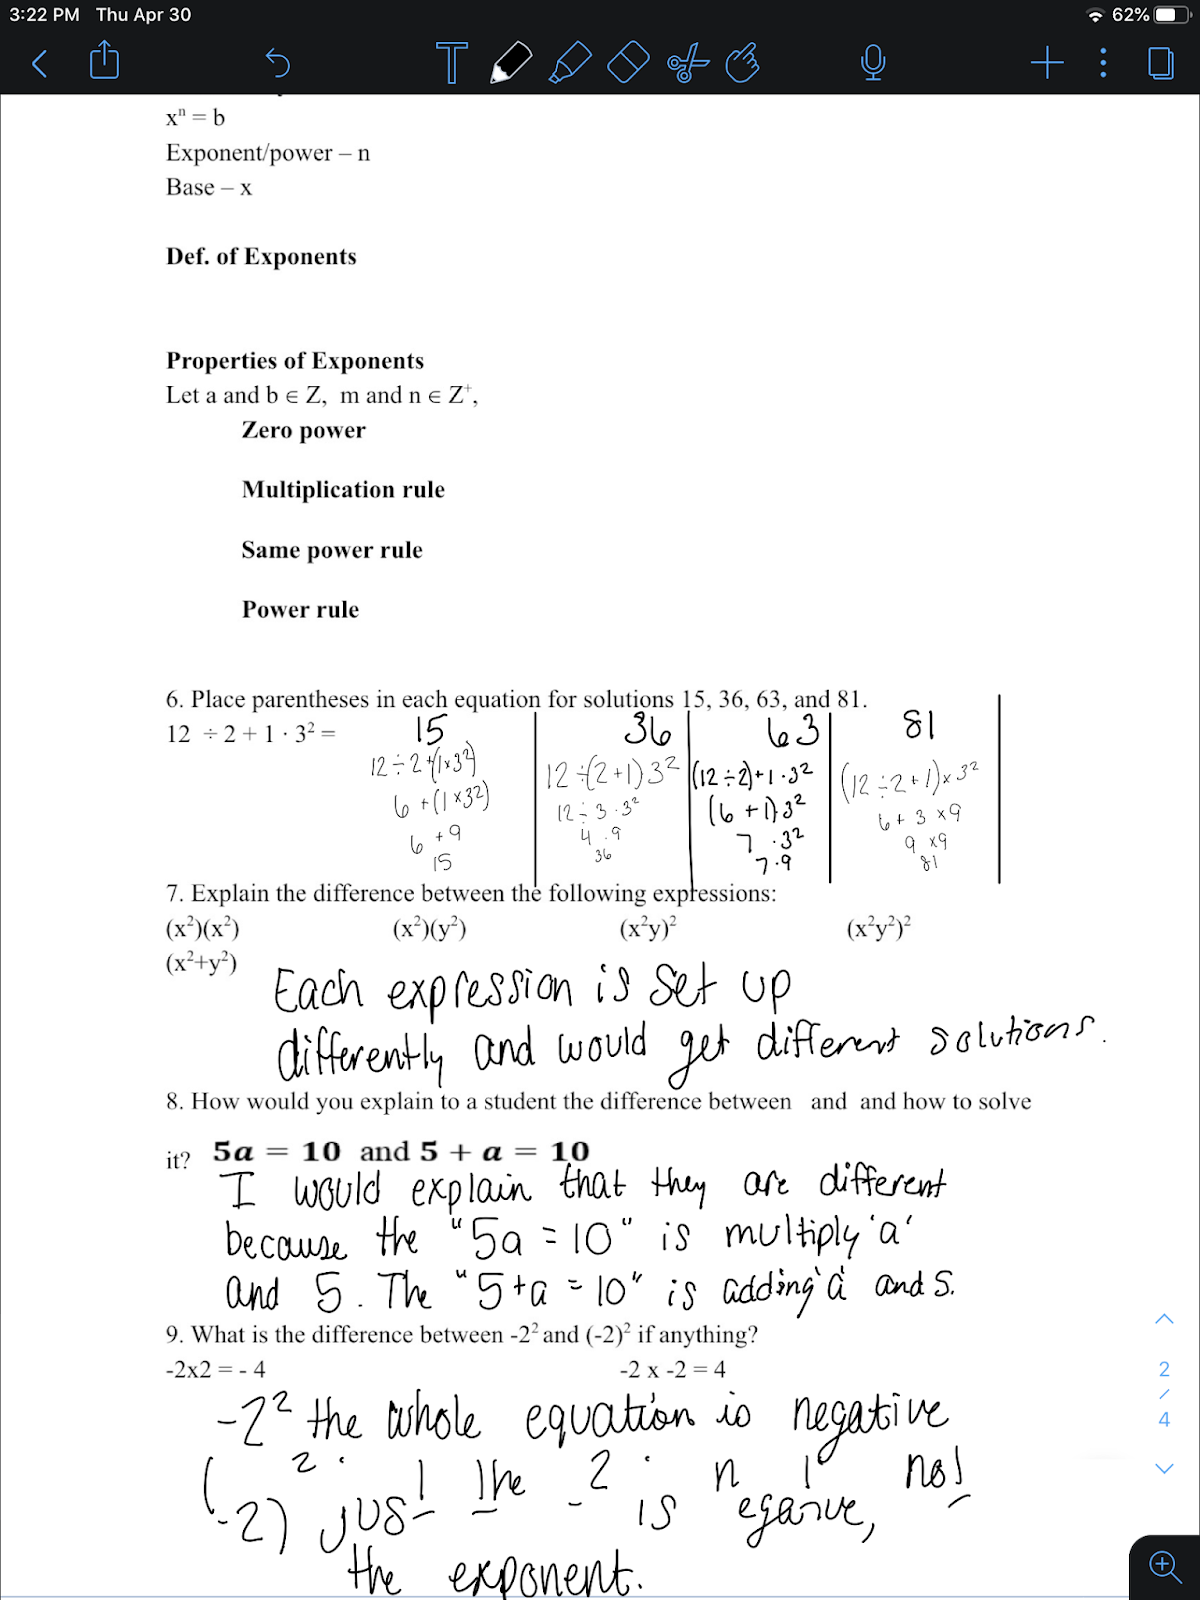 3:22 PM Thu Apr 30
62%
xⁿ = b
Exponent/power – n
Base – x
Def. of Exponents
Properties of Exponents
Let a and b ∈ Z, m and n ∈ Z⁺,
Zero power
Multiplication rule
Same power rule
Power rule
6. Place parentheses in each equation for solutions 15, 36, 63, and 81.
12 ÷ 2 + 1 · 3² =
15
12÷2+(1×3²)
6 +(1×3²)
6 +9
15
36
12÷(2+1)3²
12÷3·3²
4·9
36
63
(12÷2)+1·3²
(6+1)3²
7·3²
7·9
81
(12÷2+1)×3²
6+3×9
9×9
81
7. Explain the difference between the following expressions:
(x²)(x²) (x²)(y²) (x²y)² (x²y²)²
(x²+y²)
Each expression is set up
differently and would get different solutions.
8. How would you explain to a student the difference between and and how to solve
it? 5a = 10 and 5 + a = 10
I would explain that they are different
because the "5a = 10" is multiply 'a'
and 5. The "5+a = 10" is adding 'a' and 5.
9. What is the difference between -2² and (-2)² if anything?
-2x2 = - 4 -2 x -2 = 4
-2² the whole equation is negative
(-2)² just the -2 is negative, not
the exponent.
2
/
4